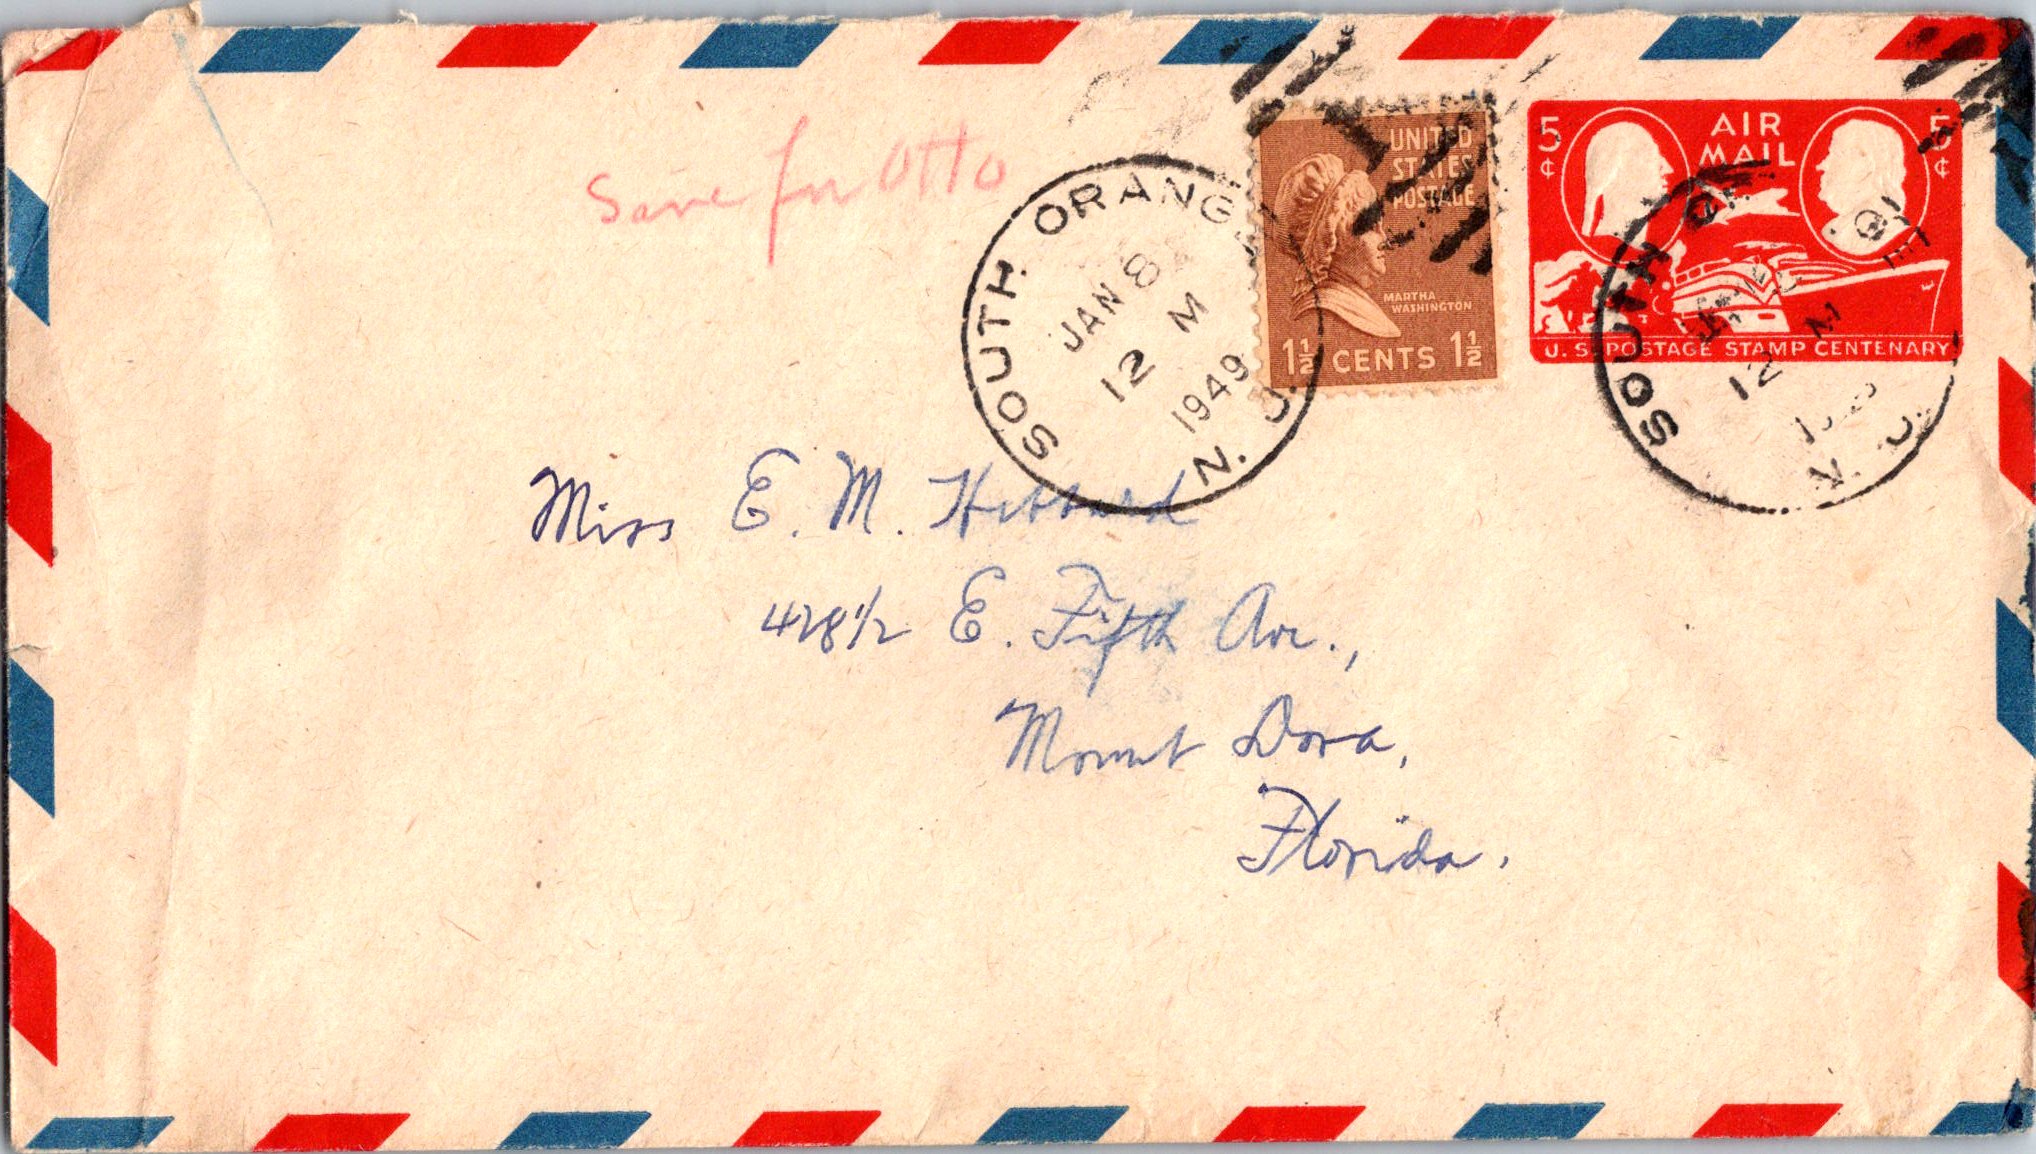 Save for Otto
SOUTH ORANGE N. J.
JAN 8
12 M
1949
UNITED
STATES
POSTAGE
MARTHA
WASHINGTON
1½ CENTS 1½
5¢ AIR MAIL 5¢
U. S. POSTAGE STAMP CENTENARY
SOUTH OR
12 M
N. J.
Miss E. M. Hibbard
428 1/2 E. Fifth Ave.,
Mount Dora,
Florida.